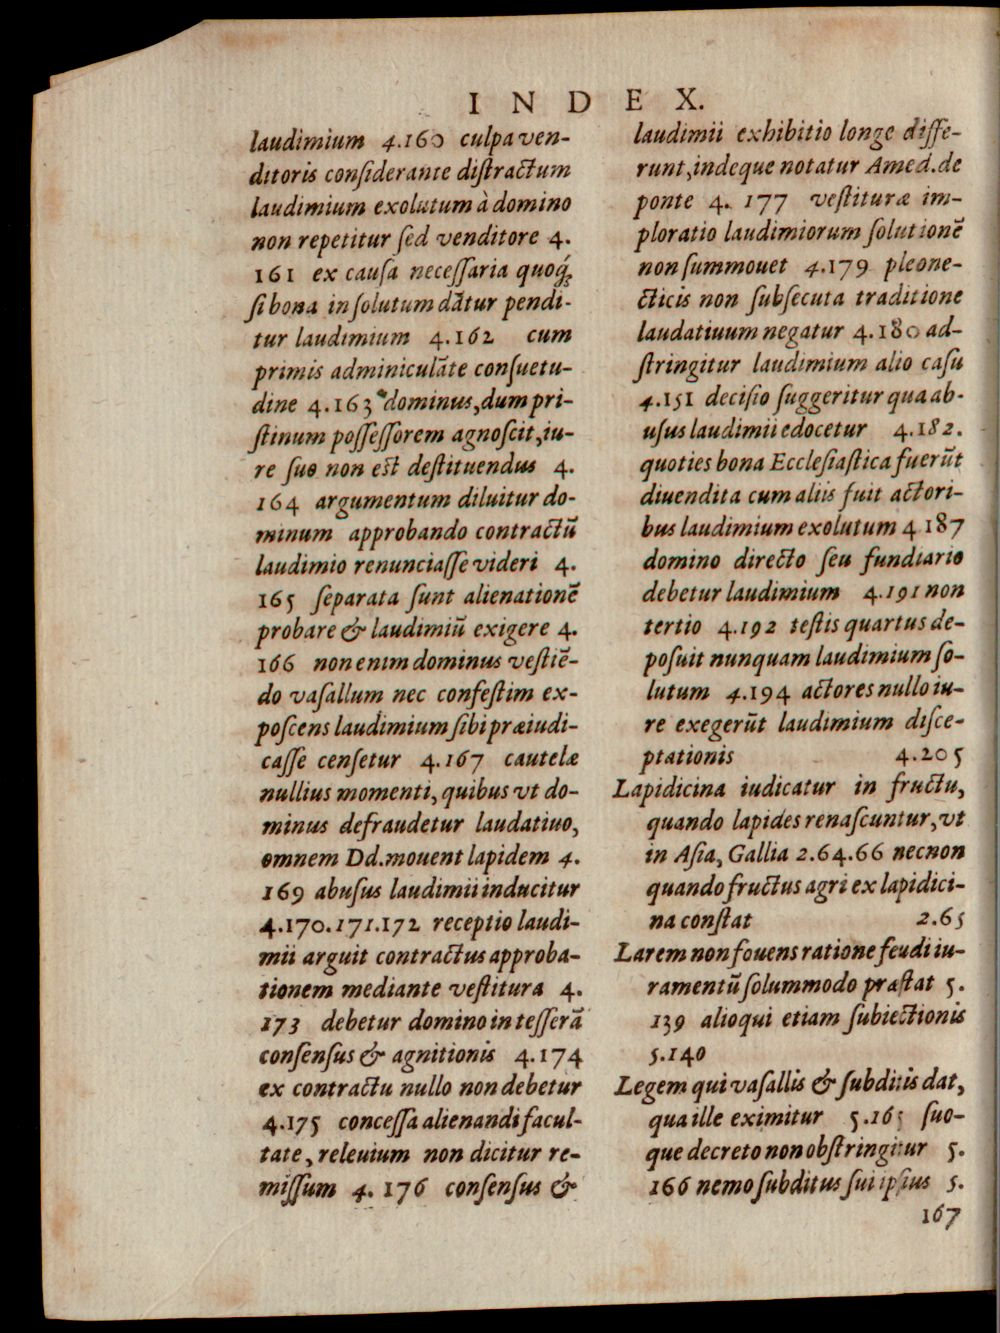 INDEX.
laudimium 4.160 culpa ven-
ditoris considerante distractum
laudimium exolutum à domino
non repetitur sed venditore 4.
161 ex causa necessaria quoq́;
si bona in solutum dātur pendi-
tur laudimium 4.162 cum
primis adminiculāte consuetu-
dine 4.163 dominus, dum pri-
stinum possessorem agnoscit, iu-
re suo non est destituendus 4.
164 argumentum diluitur do-
minum approbando contractū
laudimio renunciasse videri 4.
165 separata sunt alienationē
probare & laudimiū exigere 4.
166 non enim dominus vestiē-
do vasallum nec confestim ex-
poscens laudimium sibi præiudi-
casse censetur 4.167 cautelæ
nullius momenti, quibus vt do-
minus defraudetur laudatiuo,
omnem Dd. mouent lapidem 4.
169 abusus laudimii inducitur
4.170.171.172 receptio laudi-
mii arguit contractus approba-
tionem mediante vestitura 4.
173 debetur domino in tesserā
consensus & agnitionis 4.174
ex contractu nullo non debetur
4.175 concessa alienandi facul-
tate, releuium non dicitur re-
missum 4. 176 consensus &
laudimii exhibitio longe diffe-
runt, indeque notatur Amed. de
ponte 4. 177 vestituræ im-
ploratio laudimiorum solutionē
non summouet 4.179 pleone-
cticis non subsecuta traditione
laudatiuum negatur 4.180 ad-
stringitur laudimium alio casu
4.151 decisio suggeritur qua ab-
usus laudimii edocetur 4.182.
quoties bona Ecclesiastica fuerūt
diuendita cum aliis fuit actori-
bus laudimium exolutum 4 187
domino directo seu fundiario
debetur laudimium 4.191 non
tertio 4.192 testis quartus de-
posuit nunquam laudimium so-
lutum 4.194 actores nullo iu-
re exegerūt laudimium disce-
ptationis 4.205
Lapidicina iudicatur in fructu,
quando lapides renascuntur, vt
in Asia, Gallia 2.64.66 necnon
quando fructus agri ex lapidici-
na constat 2.65
Larem non fouens ratione feudi iu-
ramentū solummodo præstat 5.
139 alioqui etiam subiectionis
5.140
Legem qui vasallis & subditis dat,
qua ille eximitur 5.165 suo-
que decreto non obstringitur 5.
166 nemo subditus sui ipsius 5.
167